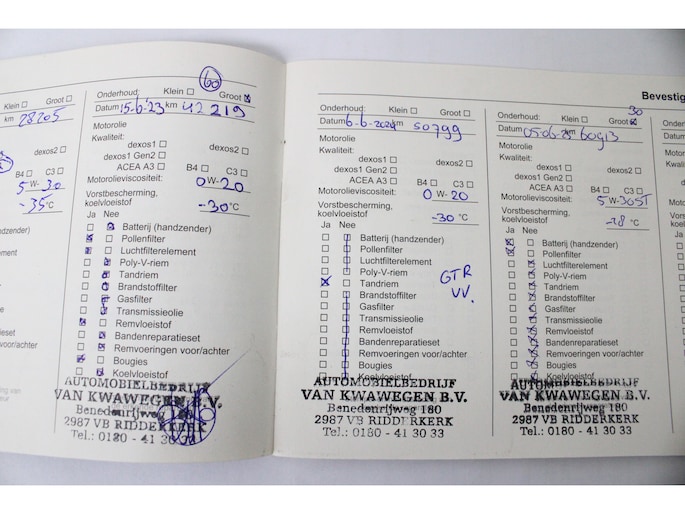 Klein ☐ Groot ☐
km 28205
dexos2 ☐
B4 ☐ C3 ☐
5 W- 30
-35 °C
(handzender)
60
Onderhoud: Klein ☐ Groot ☒
Datum 15-6-'23 km 42219
Motorolie
Kwaliteit:
dexos1 ☐ dexos2 ☐
dexos1 Gen2 ☐
ACEA A3 ☐ B4 ☐ C3 ☐
Motorolieviscositeit: 0 W- 20
Vorstbescherming,
koelvloeistof -30 °C
Ja Nee
Batterij (handzender)
Pollenfilter
Luchtfilterelement
Poly-V-riem
Tandriem
Brandstoffilter
Gasfilter
Transmissieolie
Remvloeistof
Bandenreparatieset
Remvoeringen voor/achter
Bougies
Koelvloeistof
AUTOMOBIELBEDRIJF
VAN KWAWEGEN B.V.
Benedenrijweg 180
2987 VB RIDDERKERK
Tel.: 0180 - 41 30 33
Onderhoud: Klein ☐ Groot ☐
Datum 6-6-2024 50799
Motorolie
Kwaliteit:
dexos1 ☐ dexos2 ☐
dexos1 Gen2 ☐
ACEA A3 ☐ B4 ☐ C3 ☐
Motorolieviscositeit: 0 W- 20
Vorstbescherming,
koelvloeistof -30 °C
Ja Nee
Batterij (handzender)
Pollenfilter
Luchtfilterelement
Poly-V-riem
Tandriem
Brandstoffilter
Gasfilter
Transmissieolie
Remvloeistof
Bandenreparatieset
Remvoeringen voor/achter
Bougies
Koelvloeistof
GTR
VV.
AUTOMOBIELBEDRIJF
VAN KWAWEGEN B.V.
Benedenrijweg 180
2987 VB RIDDERKERK
Tel.: 0180 - 41 30 33
Bevestig
30
Onderhoud: Klein ☐ Groot ☒
Datum 05-06-25 km 60913
Motorolie
Kwaliteit:
dexos1 ☐ dexos2 ☐
dexos1 Gen2 ☐
ACEA A3 ☐ B4 ☐ C3 ☐
Motorolieviscositeit: 5 W-30
Vorstbescherming,
koelvloeistof °C
Ja Nee
Batterij (handzender)
Pollenfilter
Luchtfilterelement
Poly-V-riem
Tandriem
Brandstoffilter
Gasfilter
Transmissieolie
Remvloeistof
Bandenreparatieset
Remvoeringen voor/achter
Bougies
Koelvloeistof
AUTOMOBIELBEDRIJF
VAN KWAWEGEN B.V.
Benedenrijweg 180
2987 VB RIDDERKERK
Tel.: 0180 - 41 30 33
Onderh
Datum
Motorol
Kwalite
Motoro
Vorstb
koelvlo
Ja N